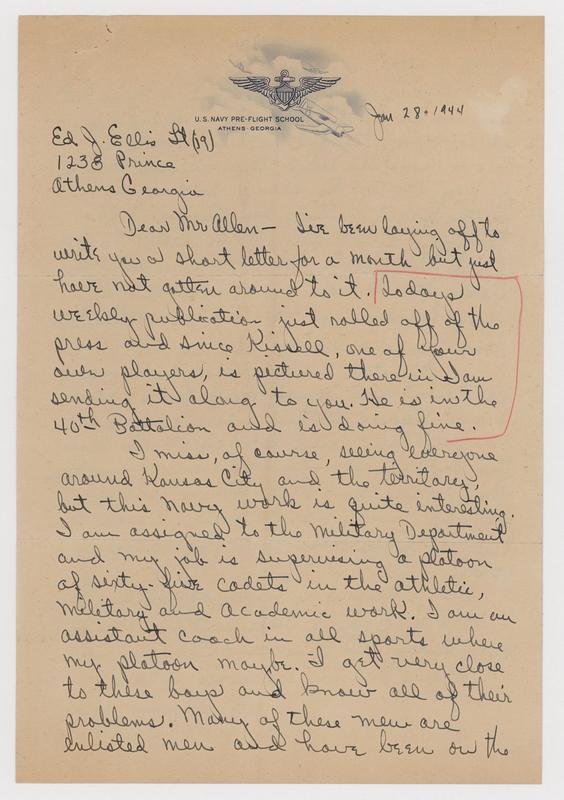 U.S. NAVY PRE-FLIGHT SCHOOL
ATHENS, GEORGIA
Jan 28, 1944
Ed J. Ellis Lt (jg)
1238 Prince
Athens Georgia
Dear Mr Allen — I've been laying off to
write you a short letter for a month but just
have not gotten around to it. Todays
weekly publication just rolled off of the
press and since Kissell, one of your
own players, is pictured therein I am
sending it along to you. He is in the
40th Battalion and is doing fine.
I miss, of course, seeing everyone
around Kansas City and the territory,
but this Navy work is quite interesting.
I am assigned to the Military Department
and my job is supervising a platoon
of sixty-five cadets in the athletic,
Military and Academic work. I am an
assistant coach in all sports where
my platoon maybe. I get very close
to these boys and know all of their
problems. Many of these men are
enlisted men and have been on the